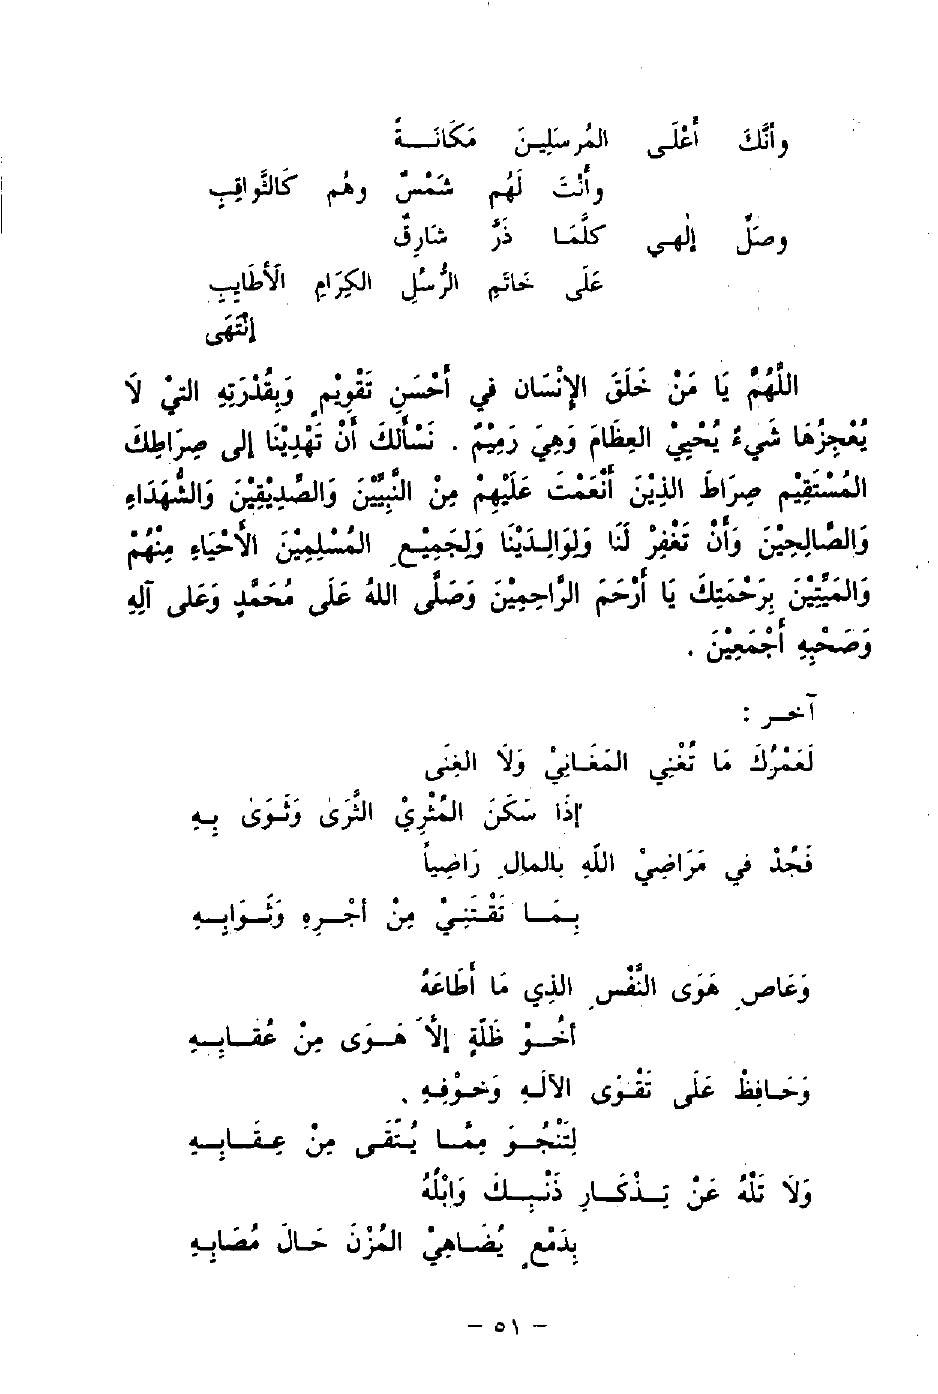 وأنَّكَ أَعْلَى المُرسَلِينَ مَكَانَةً
وأَنْتَ لَهُم شَمْسٌ وهُم كَالثَّواقِبِ
وصَلِّ إلٰهي كلَّمَا ذَرَّ شارِقٌ
عَلَى خَاتَمِ الرُّسُلِ الكِرَامِ الأَطَايِبِ
إنْتَهَى
اللَّهُمَّ يَا مَنْ خَلَقَ الإِنْسَان في أَحْسَنِ تَقْوِيْمٍ وَبِقُدْرَتِهِ التيْ لَا
يُعْجِزُهَا شَيءٌ يُحْيِيْ العِظَامَ وَهِيَ رَمِيْمٌ . نَسْأَلكَ أَنْ تَهْدِيْنَا إلى صِرَاطِكَ
المُسْتَقِيْمِ صِرَاطَ الذِيْنَ أَنْعَمْتَ عَلَيْهِمْ مِنْ النَّبِيِّيْنَ وَالصِّدِيْقِيْنَ وَالشُّهَدَاءِ
وَالصَّالِحِيْنَ وَأَنْ تَغْفِرْ لَنَا وَلِوَالِدَيْنَا وَلِجَمِيْعِ المُسْلِمِيْنَ الأَحْيَاءِ مِنْهُمْ
وَالمَيِّتِيْنَ بِرَحْمَتِكَ يَا أَرْحَمَ الرَّاحِمِيْنَ وَصَلَّى اللهُ عَلَى مُحَمَّدٍ وَعَلى آلِهِ
وَصَحْبِهِ أَجْمَعِيْنَ .
آخر :
لَعَمْرُكَ مَا تُغْنِي المَغَانِيْ وَلَا الغِنَى
إذَا سَكَنَ المُثْرِيْ الثَّرَى وَثَوَىٰ بِهِ
فَجُدْ في مَرَاضِيْ اللهِ بالمالِ رَاضِياً
بِمَا تَقْتَنِيْ مِنْ أَجْرِهِ وَثَوَابِهِ
وَعَاصِ هَوَى النَّفْسِ الذِي مَا أَطَاعَهُ
أَخُوْ ظَلَّةٍ إلاَّ هَوَى مِنْ عُقَابِهِ
وَحَافِظْ عَلَى تَقْوَى الآلَهِ وَخَوْفِهِ .
لِتَنْجُوَ مِمَّا يُتَّقَى مِنْ عِقَابِهِ
وَلَا تَلْهُ عَنْ تِذْكَارِ ذَنْبِكَ وَابْكِهُ
بِدَمْعٍ يُضَاهِيْ المُزْنَ حَالَ مُصَابِهِ
- ٥١ -